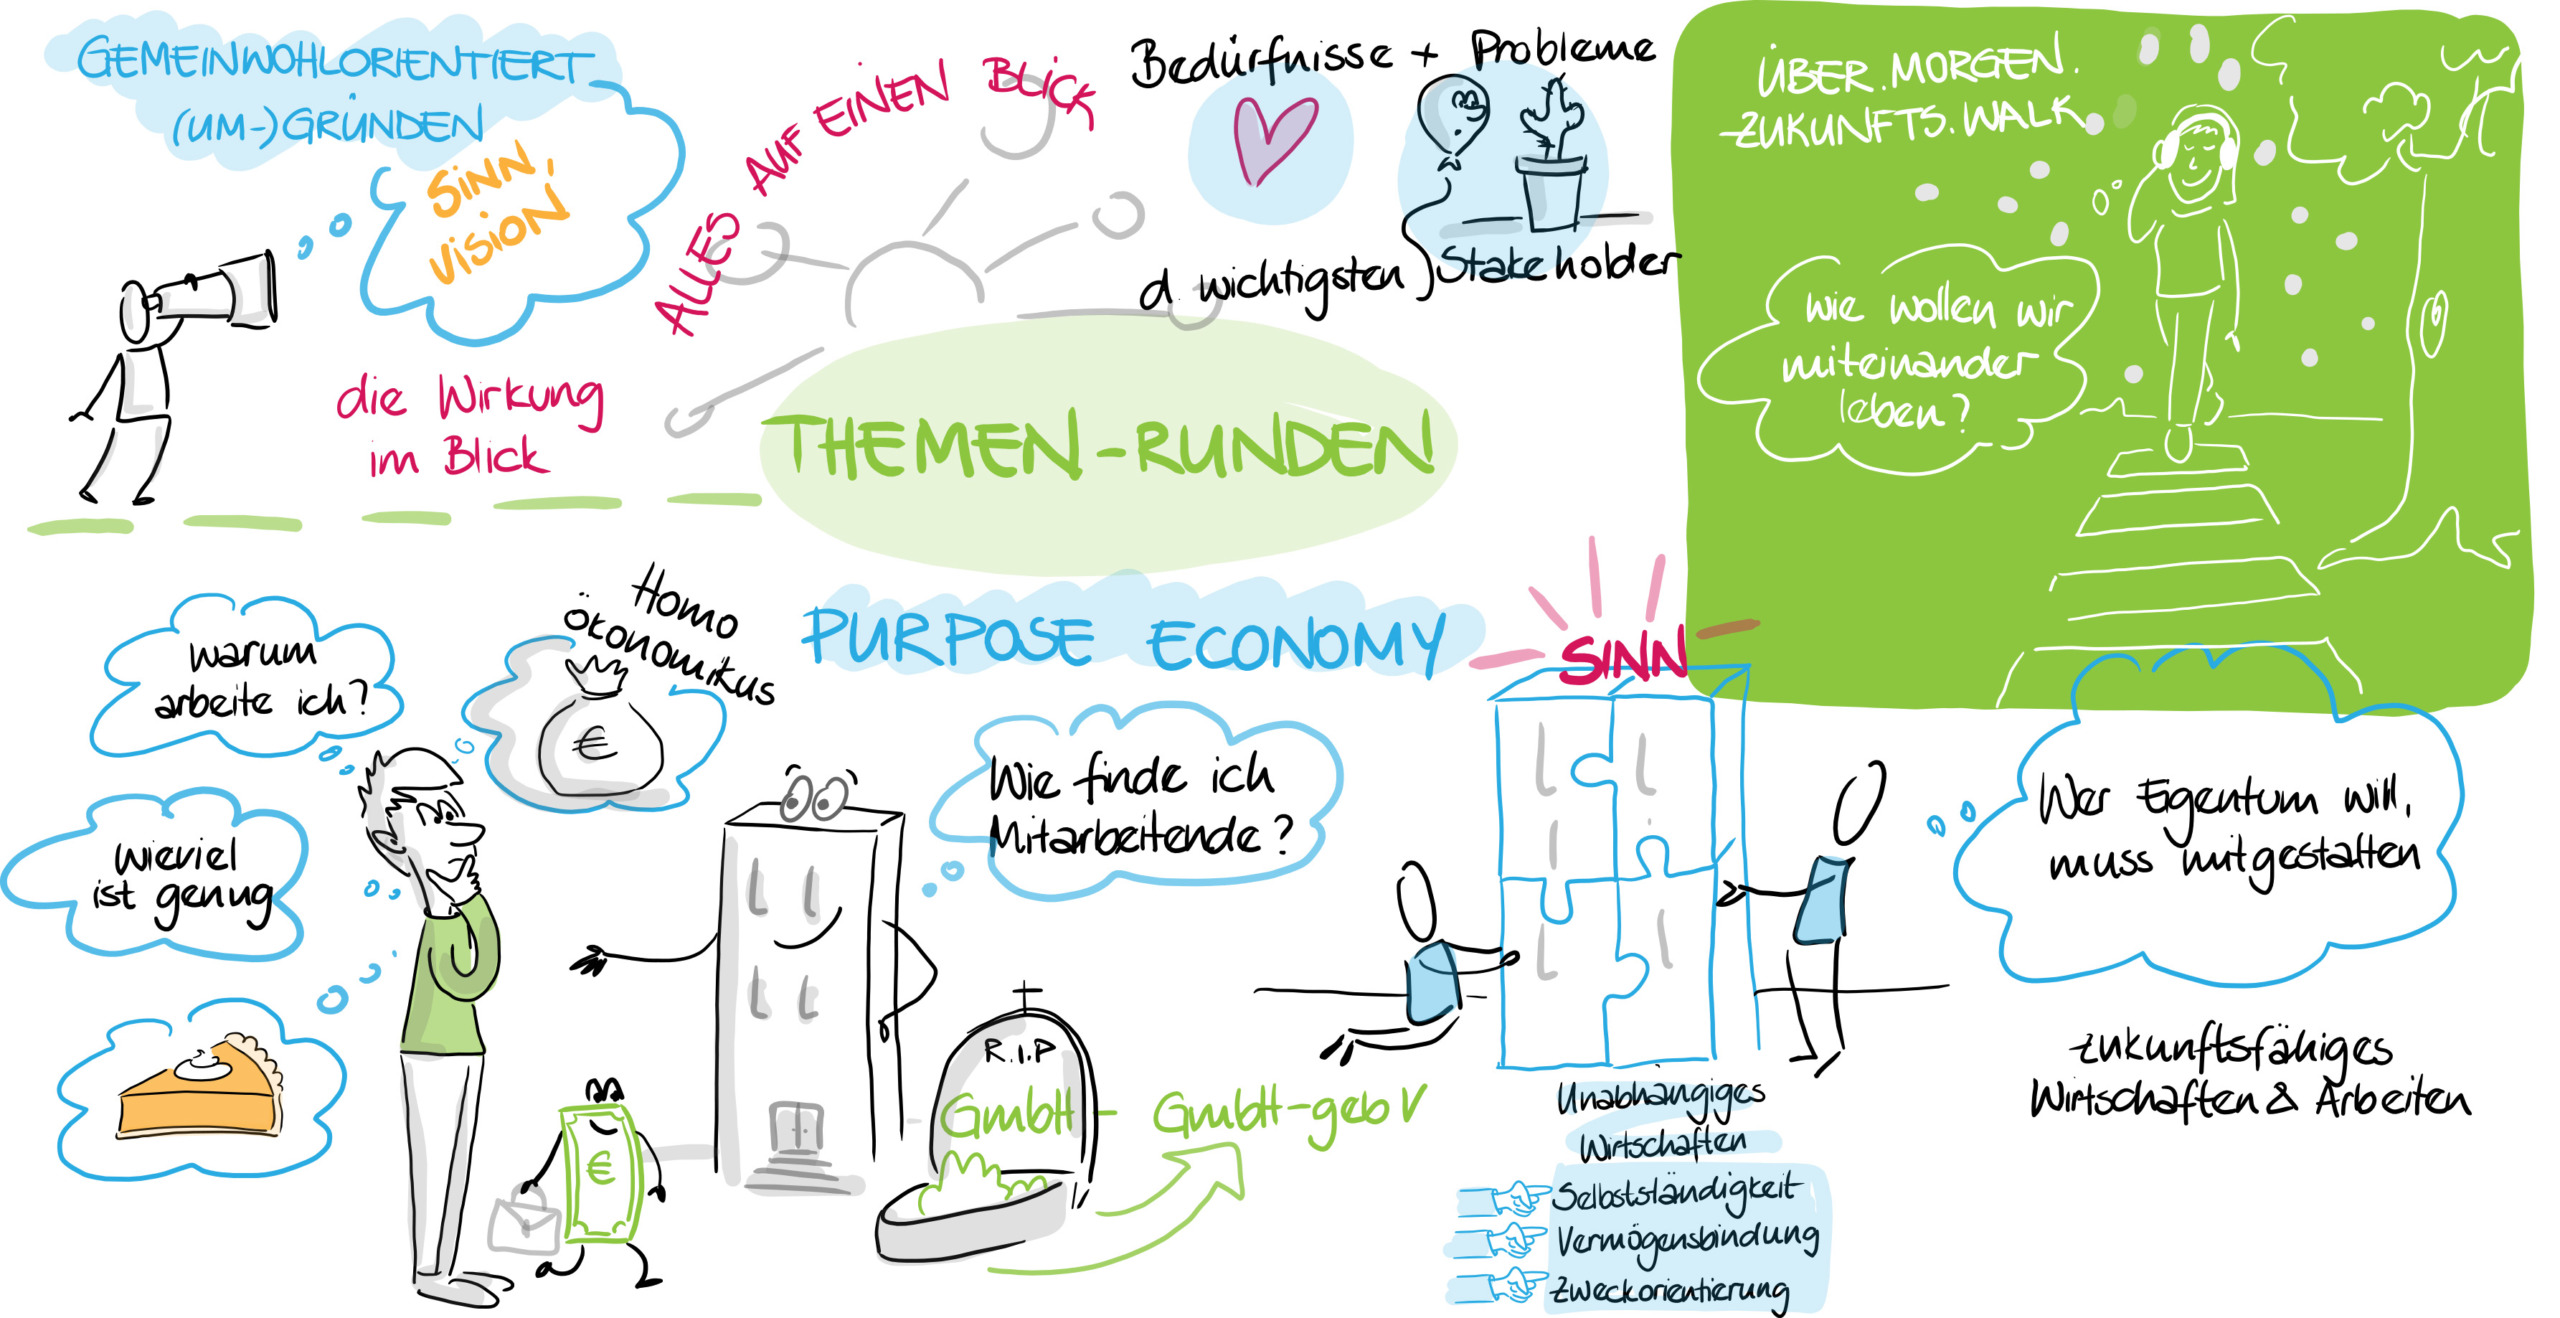 GEMEINWOHLORIENTIERT
(UM-)GRÜNDEN
SINN,
VISION
die Wirkung
im Blick
ALLES AUF EINEN BLICK
Bedürfnisse + Probleme
d. wichtigsten Stakeholder
ÜBER.MORGEN.
ZUKUNFTS.WALK
Wie wollen wir
miteinander
leben?
THEMEN-RUNDEN
PURPOSE ECONOMY
warum
arbeite ich?
wieviel
ist genug
Homo
ökonomikus
€
€
Wie finde ich
Mitarbeitende?
R.I.P
GmbH - GmbH-gebV
SINN
Wer Eigentum will,
muss mitgestalten
Unabhängiges
Wirtschaften
Selbstständigkeit
Vermögensbindung
Zweckorientierung
zukunftsfähiges
Wirtschaften & Arbeiten